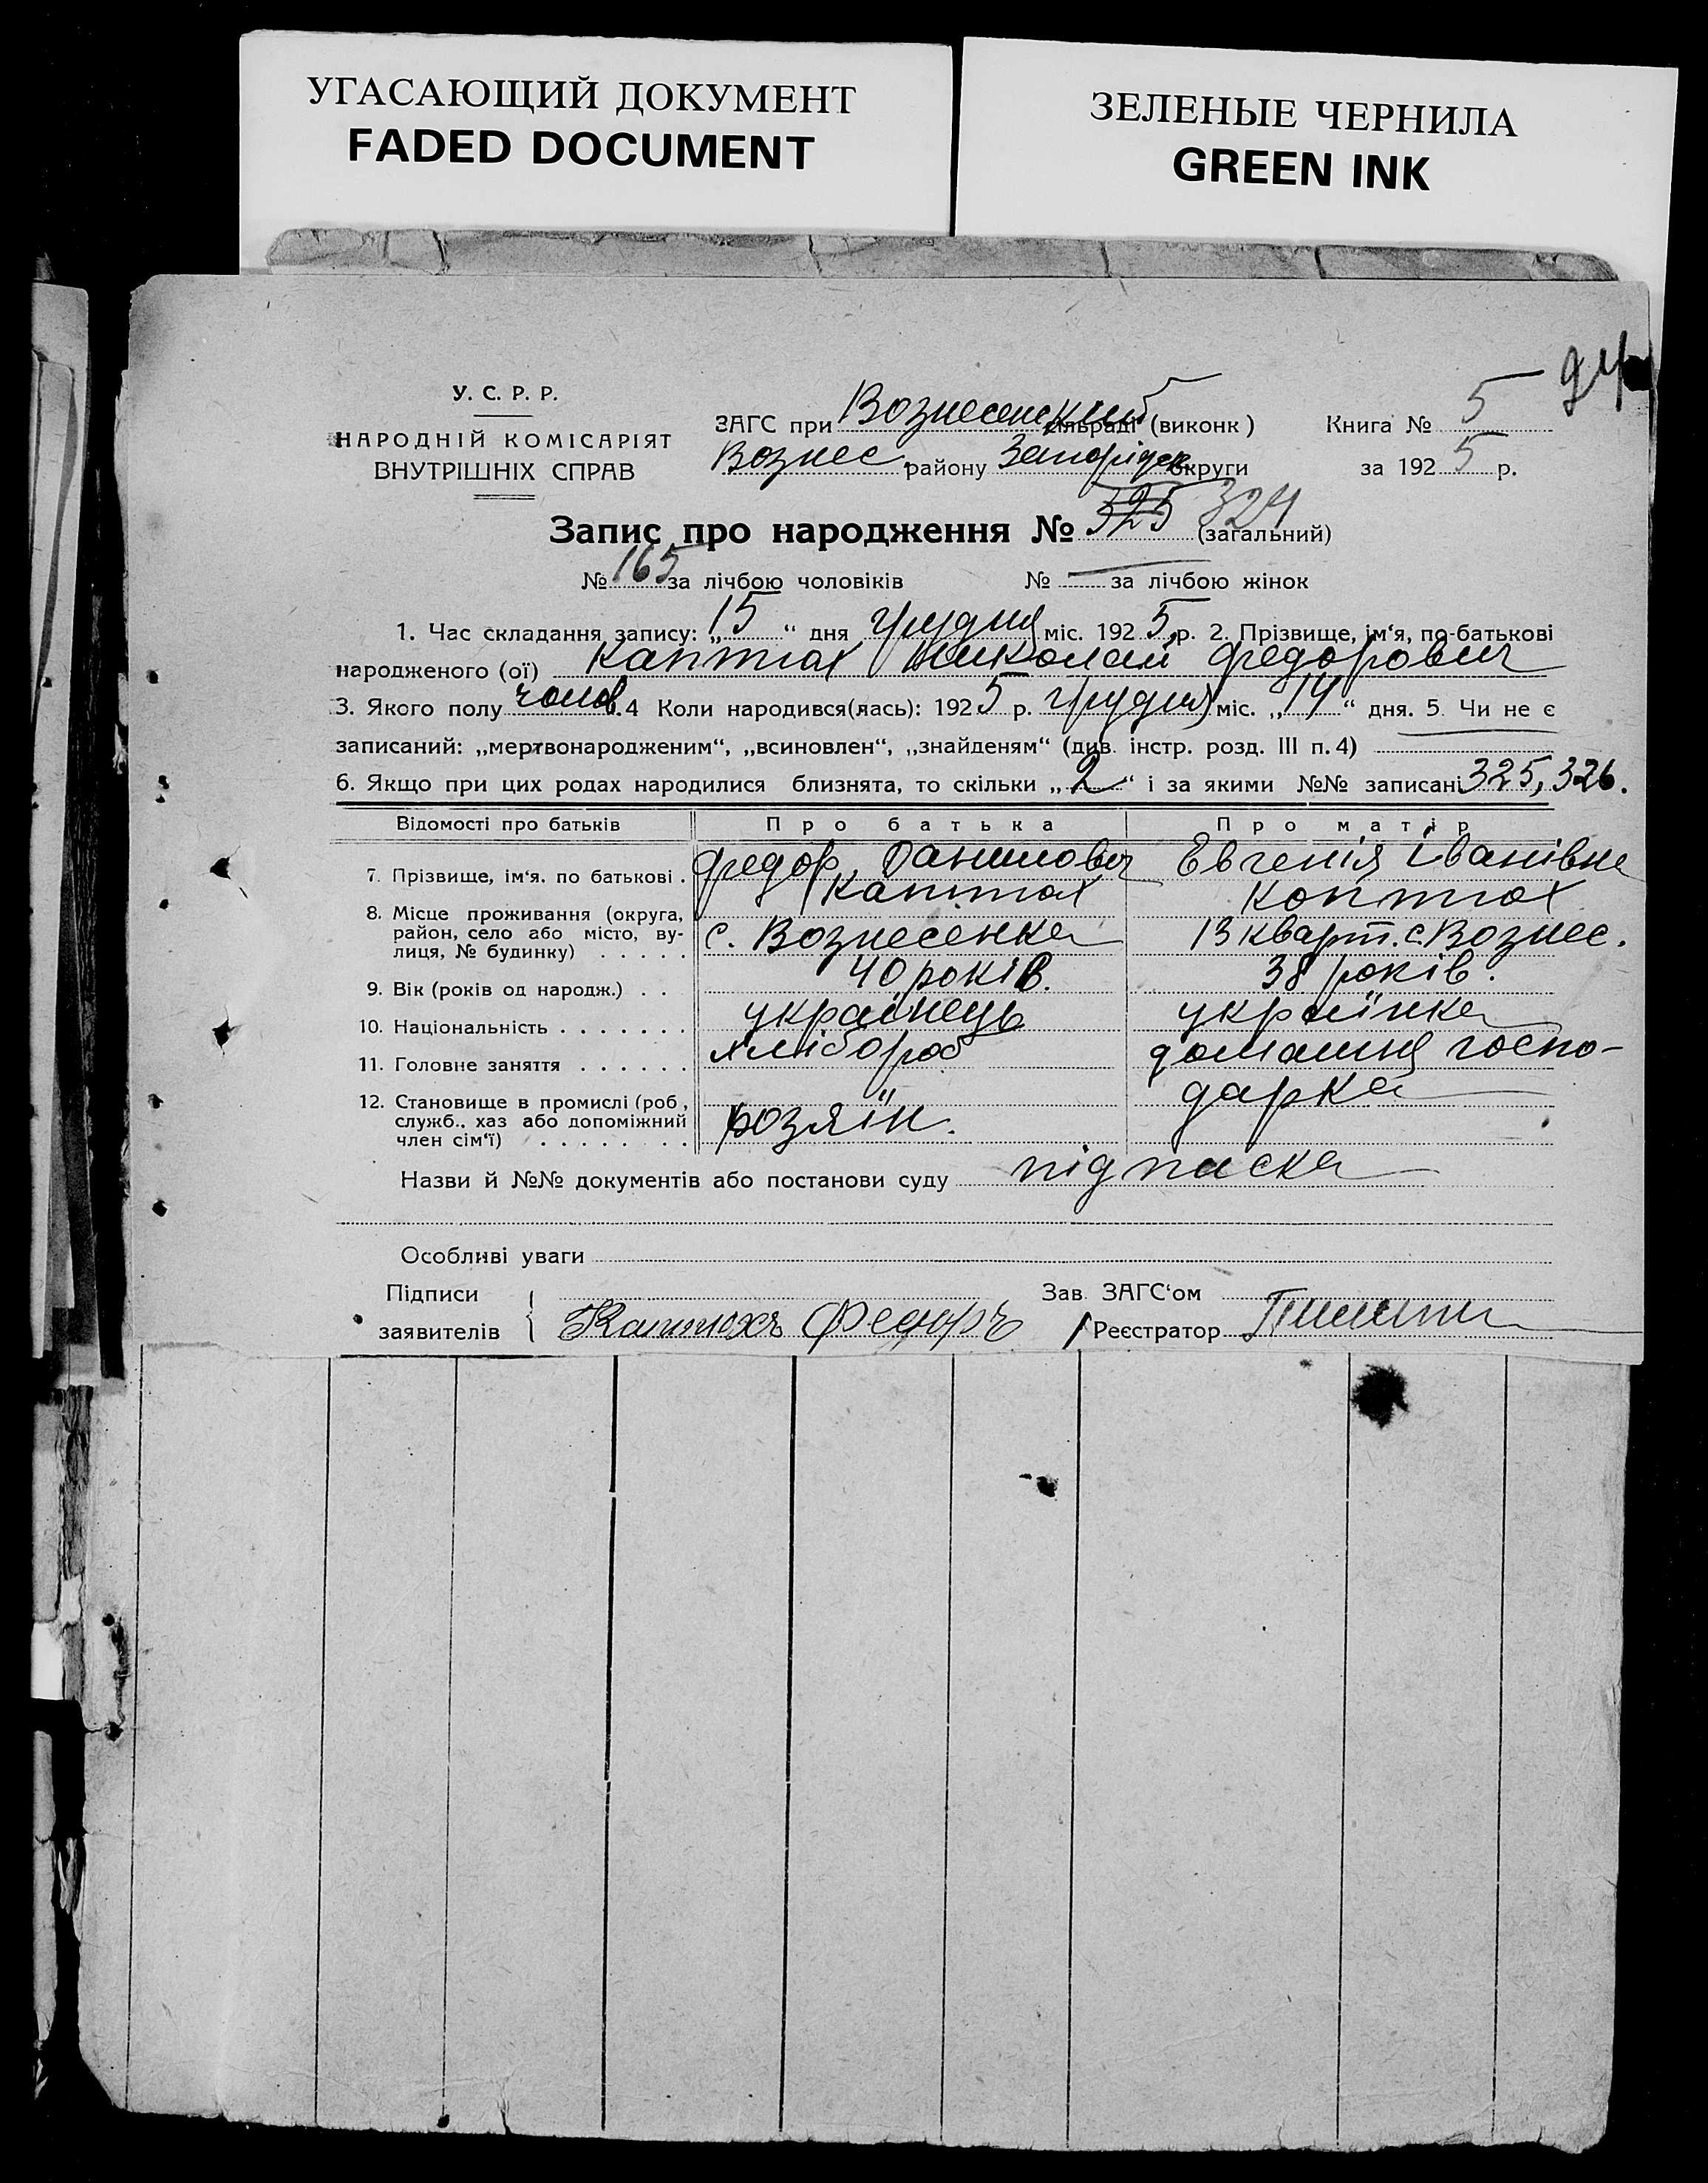 УГАСАЮЩИЙ ДОКУМЕНТ
FADED DOCUMENT
ЗЕЛЕНЫЕ ЧЕРНИЛА
GREEN INK
У. С. Р. Р.
НАРОДНІЙ КОМІСАРІЯТ
ВНУТРІШНІХ СПРАВ
ЗАГС при Вознесенській сільраді (виконк)
Вознес. району Запорізьк. округи
Книга № 5
за 1925 р.
Запис про народження № 325 324 (загальний)
№ 165 за лічбою чоловіків № — за лічбою жінок
1. Час складання запису: „15“ дня грудня міс. 1925 р. 2. Прізвище, ім‘я, по-батькові
народженого (ої) Каптюх Николай Федорович
3. Якого полу чолов. 4 Коли народився(лась): 1925 р. грудня міс. „14“ дня. 5. Чи не є
записаний: „мертвонародженим“, „всиновлен“, „знайденям“ (див. інстр. розд. III п. 4) —
6. Якщо при цих родах народилися близнята, то скільки „2“ і за якими №№ записані 325, 326.
Відомості про батьків Про батька Про матір
7. Прізвище, ім‘я. по батькові . Федор Данилович Евгенія Іванівна
Каптюх Коптюх
8. Місце проживання (округа,
район, село або місто, ву-
лиця, № будинку) . . . . . с. Вознесенка 13 кварт. с. Вознес.
9. Вік (років од народж.) . . 40 років. 38 років.
10. Національність . . . . . . . українець українка
11. Головне заняття . . . . . . хлібороб домашня госпо-
дарка
12. Становище в промислі (роб.,
служб., хаз або допоміжний
член сім‘ї) . . . . . . . . хозяїн. "
Назви й №№ документів або постанови суду підписка
Особливі уваги
Підписи
заявителів Каптюхъ Федоръ
Зав. ЗАГС‘ом
Реєстратор